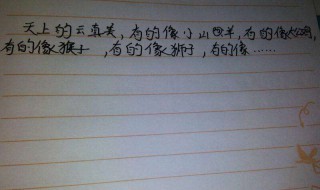 天上的云真美,有的像小山羊,有的像公鸡,
有的像猴子,有的像狮子,有的像……